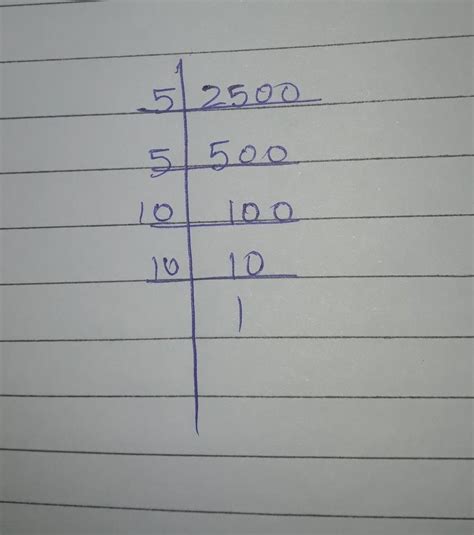 5 2500
5 500
10 100
10 10
1